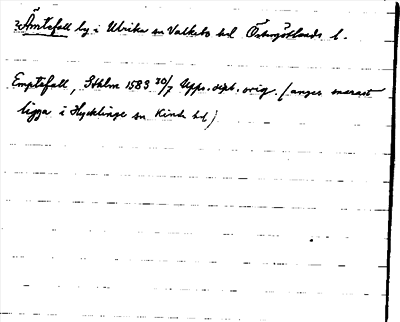 Ämtefall by i Ulrika sn Valkebo hd Östergötlands l.
Emptefall, Sthlm 1583 30/7 Upps. dipl. orig. (anges snarast
ligga i Hycklinge sn Kinds hd)